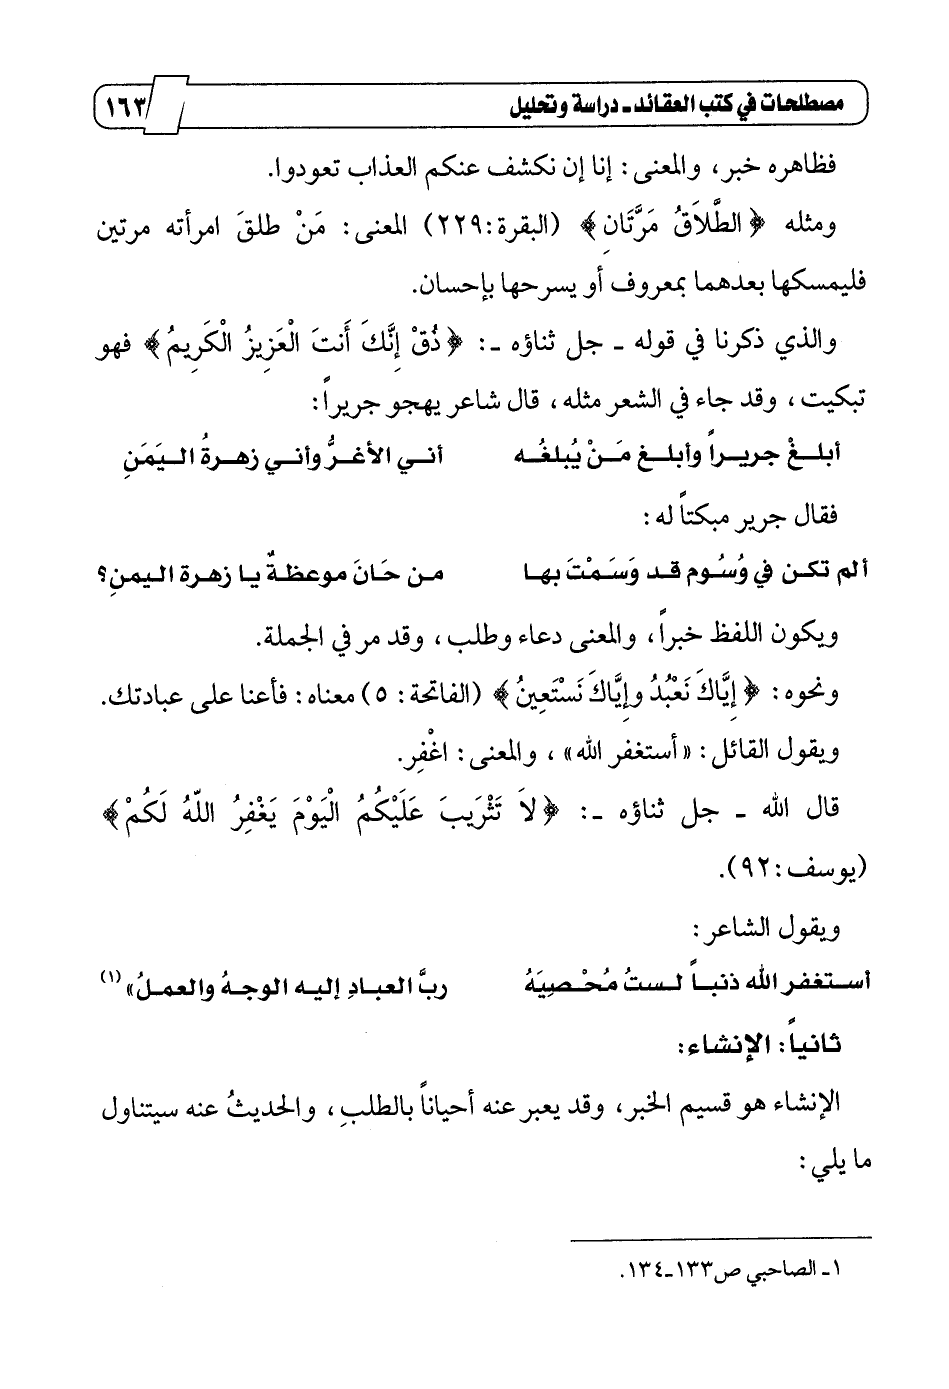 مصطلحات في كتب العقائد ـ دراسة وتحليل ١٦٣
فظاهره خبر، والمعنى: إنا إن نكشف عنكم العذاب تعودوا.
ومثله ﴿الطَّلاَقُ مَرَّتَانِ﴾ (البقرة:٢٢٩) المعنى: مَنْ طلقَ امرأته مرتين
فليمسكها بعدهما بمعروف أو يسرحها بإحسان.
والذي ذكرنا في قوله ـ جل ثناؤه ـ: ﴿ذُقْ إِنَّكَ أَنتَ الْعَزِيزُ الْكَرِيمُ﴾ فهو
تبكيت، وقد جاء في الشعر مثله، قال شاعر يهجو جريراً:
أبلـغْ جريـراً وأبلـغ مَـنْ يُبلغُـه أنـي الأغـرُّ وأنـي زهـرةُ اليَمَنِ
فقال جرير مبكتاً له:
ألم تكـن في وُسُوم قـد وَسَـمْتَ بهـا مـن حَـانَ موعظـةٌ يـا زهـرة اليمنِ؟
ويكون اللفظ خبراً، والمعنى دعاء وطلب، وقد مر في الجملة.
ونحوه: ﴿إِيَّاكَ نَعْبُدُ وإِيَّاكَ نَسْتَعِينُ﴾ (الفاتحة: ٥) معناه: فأعنا على عبادتك.
ويقول القائل: «أستغفر الله»، والمعنى: اغْفِر.
قال الله ـ جل ثناؤه ـ: ﴿لاَ تَثْرِيبَ عَلَيْكُمُ الْيَوْمَ يَغْفِرُ اللّهُ لَكُمْ﴾
(يوسف:٩٢).
ويقول الشاعر:
أستغفر الله ذنبـاً لـستُ مُحْـصِيَهُ ربَّ العبـادِ إليـه الوجـهُ والعمـلُ» (١)
ثانياً: الإنشاء:
الإنشاء هو قسيم الخبر، وقد يعبر عنه أحياناً بالطلبِ، والحديثُ عنه سيتناول
ما يلي:
١ـ الصاحبي ص١٣٣ـ١٣٤.